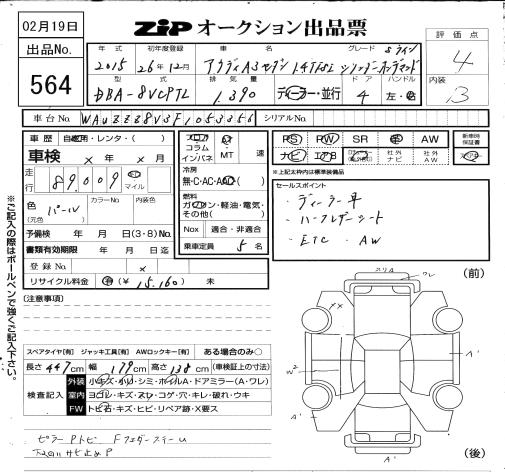 02月19日
ZIP オークション出品票
評価点
4
出品No.
564
年式 初年度登録 車名 グレード Sライン
2015 26年12月 アウディA3セダン 1.4TFSI シリンダーオンデマンド
型式 排気量 ドア ハンドル
DBA-8VCPTL 1,390 ディーラー・並行 4 左・右
内装
3
車台No. WAUZZZ8V3F1053356 シリアルNo.
車歴 自家用・レンタ・( )
車検 × 年 × 月
走行 89,009 km マイル
フロア コラム インパネ AT MT 速
冷房
無・C・AC・AAC( )
燃料
ガソリン・軽油・電気・その他( )
Nox 適合・非適合
乗車定員 5 名
PS PW SR 革 AW
ナビ エアB 社外ナビ 社外AW
新車時保証書
※上記太枠内は標準装備品
色(元色) パール カラーNo. 内装色
予備検 年 月 日(3・8)No.
書類有効期限 年 月 日
登録No. ×
リサイクル料金 有(¥ 15,160) 未
セールスポイント
・ディーラー車
・ハーフレザーシート
・ETC ・AW
※ご記入の際はボールペンで強くご記入下さい。
(注意事項)
(前)
スリA
ワレ
××
A'
W²
A'
A'
(後)
スペアタイヤ[有] ジャッキ工具[有] AWロックキー[有] ある場合のみ○
長さ 447cm 幅 179cm 高さ 138cm (車検証上の寸法)
検査記入
外装 小キズ・小凹・シミ・ホイルA・ドアミラー(A・ワレ)
室内 ヨゴレ・キズ・スレ・コゲ・穴・キレ・破れ・ウキ
FW トビ石・キズ・ヒビ・リペア跡・X要ス
ピラーPトビ Fフェンダー